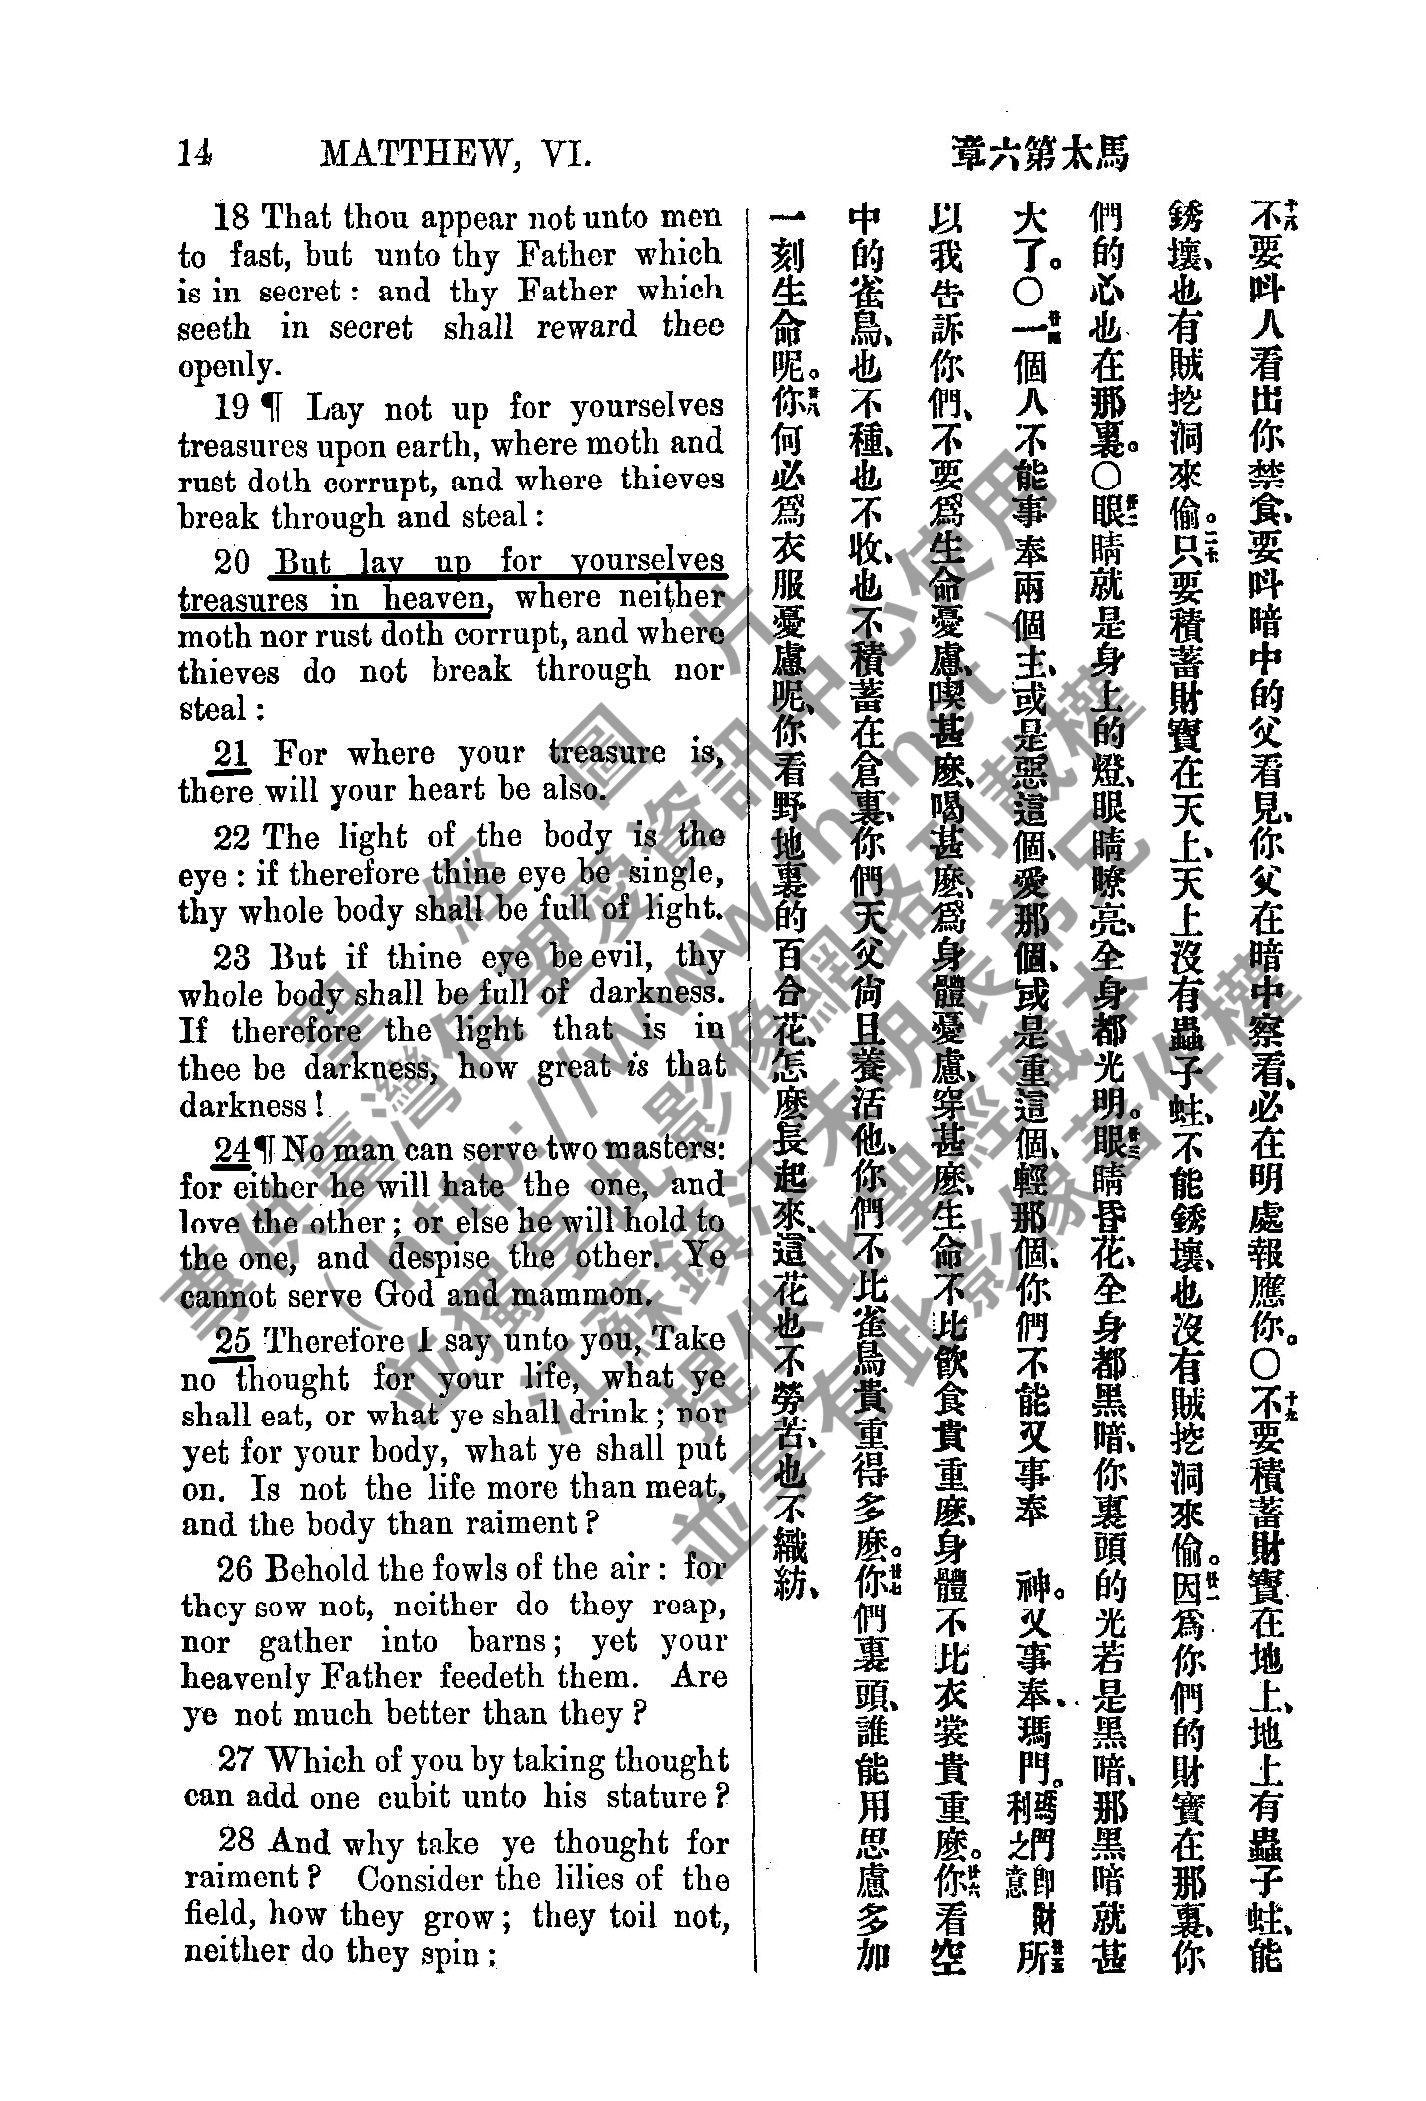 14 MATTHEW, VI. 章六第太馬
18 That thou appear not unto men
to fast, but unto thy Father which
is in secret : and thy Father which
seeth in secret shall reward thee
openly.
19 ¶ Lay not up for yourselves
treasures upon earth, where moth and
rust doth corrupt, and where thieves
break through and steal :
20 But lay up for yourselves
treasures in heaven, where neither
moth nor rust doth corrupt, and where
thieves do not break through nor
steal :
21 For where your treasure is,
there will your heart be also.
22 The light of the body is the
eye : if therefore thine eye be single,
thy whole body shall be full of light.
23 But if thine eye be evil, thy
whole body shall be full of darkness.
If therefore the light that is in
thee be darkness, how great is that
darkness !
24 ¶ No man can serve two masters:
for either he will hate the one, and
love the other ; or else he will hold to
the one, and despise the other. Ye
cannot serve God and mammon.
25 Therefore I say unto you, Take
no thought for your life, what ye
shall eat, or what ye shall drink ; nor
yet for your body, what ye shall put
on. Is not the life more than meat,
and the body than raiment ?
26 Behold the fowls of the air : for
they sow not, neither do they reap,
nor gather into barns ; yet your
heavenly Father feedeth them. Are
ye not much better than they ?
27 Which of you by taking thought
can add one cubit unto his stature ?
28 And why take ye thought for
raiment ? Consider the lilies of the
field, how they grow ; they toil not,
neither do they spin :
十八不要呌人看出你禁食、要呌暗中的父看見、你父在暗中察看、必在明處報應你。〇十九不要積蓄財寶在地上、地上有蟲子蛀、能
銹壞、也有賊挖洞來偷。二十只要積蓄財寶在天上、天上沒有蟲子蛀、不能銹壞、也沒有賊挖洞來偷。廿一因爲你們的財寶在那裏、你
們的心也在那裏。〇廿二眼睛就是身上的燈、眼睛瞭亮、全身都光明。廿三眼睛昏花、全身都黑暗、你裏頭的光若是黑暗、那黑暗就甚
大了。〇廿四一個人不能事奉兩個主、或是惡這個、愛那個、或是重這個、輕那個、你們不能又事奉 神。又事奉、瑪門。瑪門卽財利之意廿五所
以我告訴你們、不要爲生命憂慮、喫甚麽、喝甚麽、爲身體憂慮、穿甚麽、生命不比飮食貴重麽、身體不比衣裳貴重麽。廿六你看空
中的雀鳥、也不種、也不收、也不積蓄在倉裏、你們天父尙且養活他、你們不比雀鳥貴重得多麽。廿七你們裏頭、誰能用思慮多加
一刻生命呢。廿八你何必爲衣服憂慮呢、你看野地裏的百合花、怎麽長起來、這花也不勞苦、也不織紡、
聖經圖片
專供臺灣信望愛資訊中心使用
( http://www.fhl.net )
並獨享此影像網路刊載權
江蘇鎮江朱明長弟兄
提供此聖經藏本
並享有此影像著作權